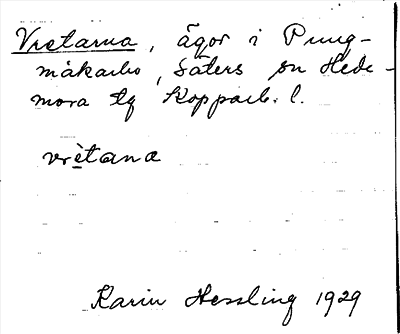 Vretarna, ägor i Pung-
måkarbo, Säters sn Hede-
mora tg Kopparb. l.
vrètana
Karin Hessling 1929